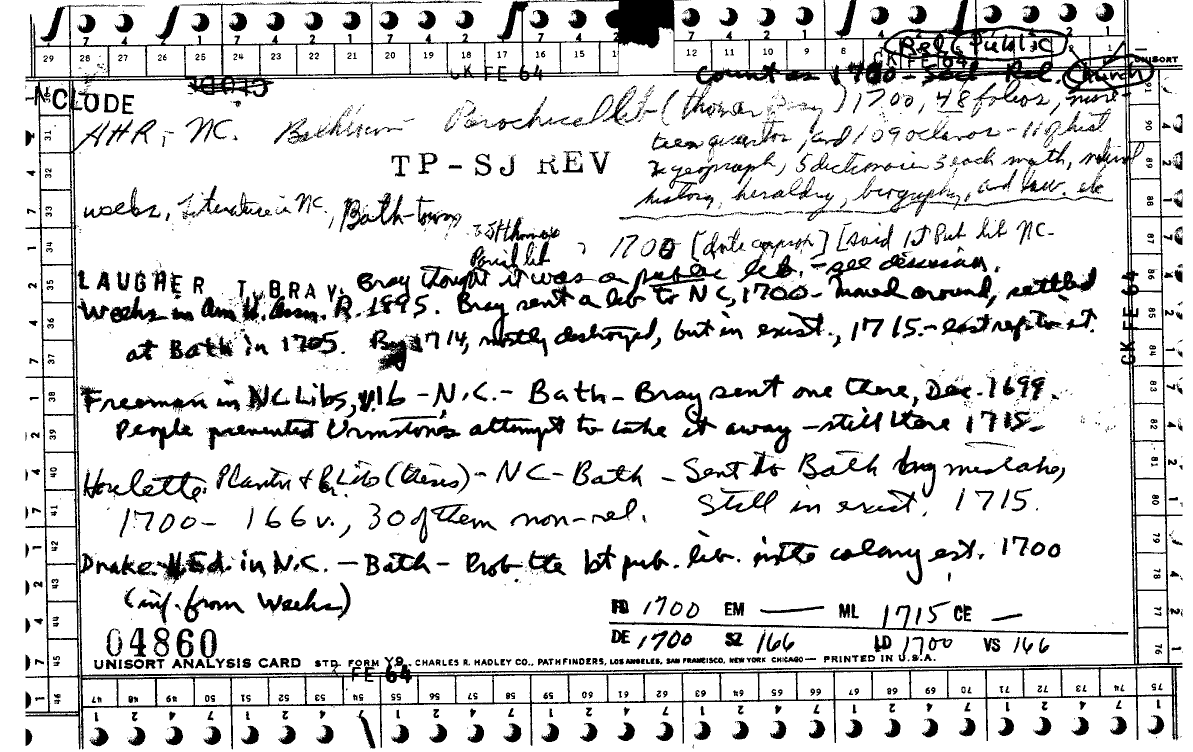 7 4 2 1 7 4 2 1 7 4 2 1 7 4
29 28 26 25 24 23 22 21 20 19 18 17 16 15 12 11 10 9 8
Rel & Public
CK FE 64
UNISORT
CODED
CK FE 64
Count as 1700 - Rel. Church
NCLODE
AHR, NC. Parochial lib (Thomas Bray) 1700, 48 folios, nine-
teen quartos, and 109 octavos - 11 of hist
& geograph, 5 dictionaries 3 each math, natural
history, heraldry, biography, and law. etc
TP-SJ REV
Weeks, Literature in NC, Bath-town
St Thomas
Parish lib 1700 [date approx] [said 1st Pub lib NC-
LAUGHER T. BRAY. Bray thought it was a public lib. - see discussion.
Weeks in Am H. Assn. R. 1895. Bray sent a lib to NC, 1700 - moved around, settled
at Bath in 1705. By 1714, mostly destroyed, but in exist., 1715. - last rep to it.
Freeman in NC Libs, v.16 - N.C. - Bath - Bray sent one there, Dec. 1699.
People prevented Urmston's attempt to take it away - still there 1715.
Houlette. Plantn & P. Libs (thesis) - NC - Bath - Sent to Bath by mistake,
1700 - 166 v., 30 of them non-rel. Still in exist. 1715.
Drake. H Ed. in N.C. - Bath - Prob the 1st pub. lib. in the colony est. 1700
(inf. from Weeks)
FD 1700 EM — ML 1715 CE —
DE 1700 SZ 166 LD 1700 VS 166
04860
UNISORT ANALYSIS CARD STD. FORM Y9. CHARLES R. HADLEY CO., PATHFINDERS, LOS ANGELES, SAN FRANCISCO, NEW YORK CHICAGO — PRINTED IN U.S.A.
FE 64
CK FE 64
47 48 49 50 51 52 53 54 55 56 57 58 59 60 61 62 63 64 65 66 67 68 69 70 71 72 73 74 75